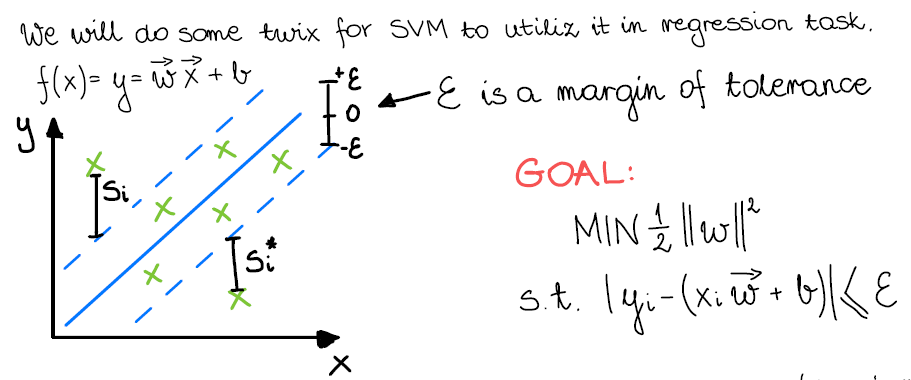 We will do some twix for SVM to utiliz it in regression task.
f(x)= y= w⃗ x⃗ + b
+ε
0
-ε
ε is a margin of tolerance
y
Si
Si*
x
GOAL:
MIN ½ ||w||²
s.t. |yi-(xi w⃗ + b)|⩽ ε